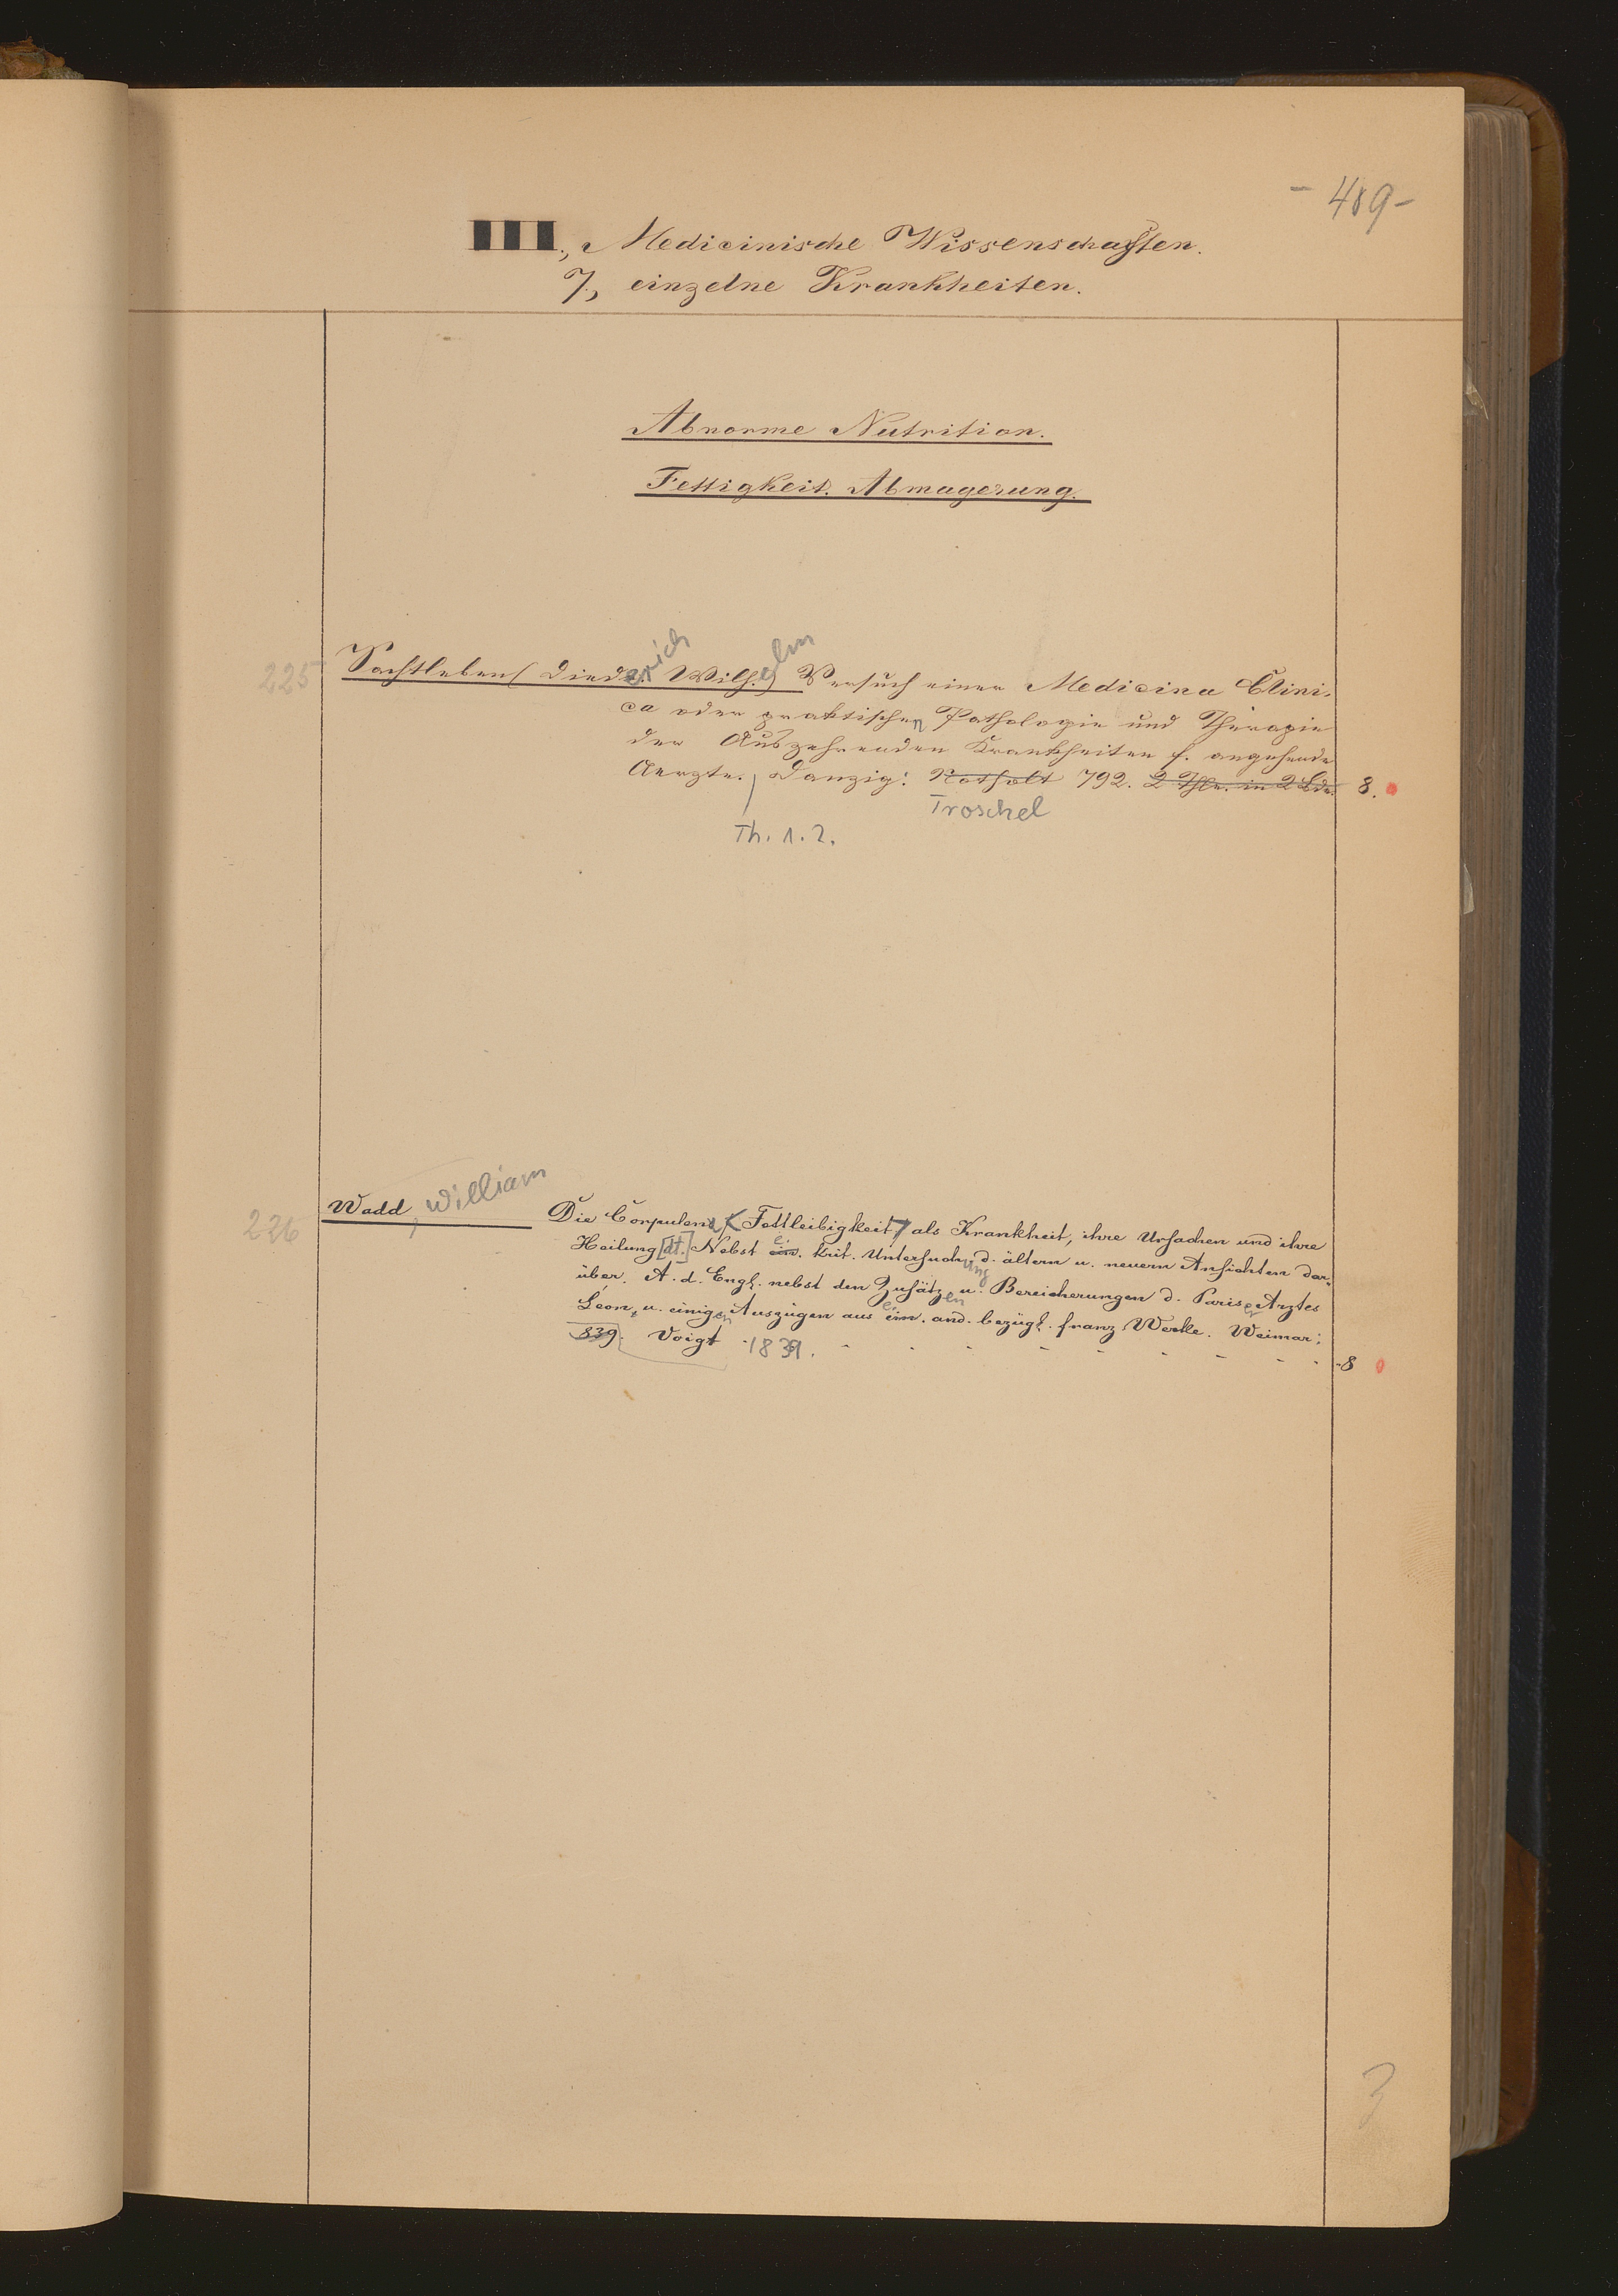 - 489 -
III., Medicinische Wissenschaften.
7, einzelne Krankheiten.
Abnorme Nutrition.
Fettigkeit. Abmagerung.
225 Sachtleben (Diederich Wilhelm) Versuch einer Medicina Clini-
ca oder praktischen Pathologie und Therapie
der Auszehrenden Krankheiten f. angehende
Aerzte. Danzig: Rothholt 792. 2 Thle. in 2 Bde. 8.
Troschel
Th. 1. 2.
226 Wadd, William Die Corpulenz (Fettleibigkeit) als Krankheit, ihre Ursachen und ihre
Heilung [dt.] Nebst ein. krit. Untersuchung d. ältern u. neuern Ansichten dar-
über. A. d. Engl. nebst den Zusätzen u. Bereicherungen d. Pariser Arztes
Léon, u. einigen Auszügen aus ein. and. bezügl. franz. Werke. Weimar:
839. Voigt 1839. - - - - - - - - - 8
3